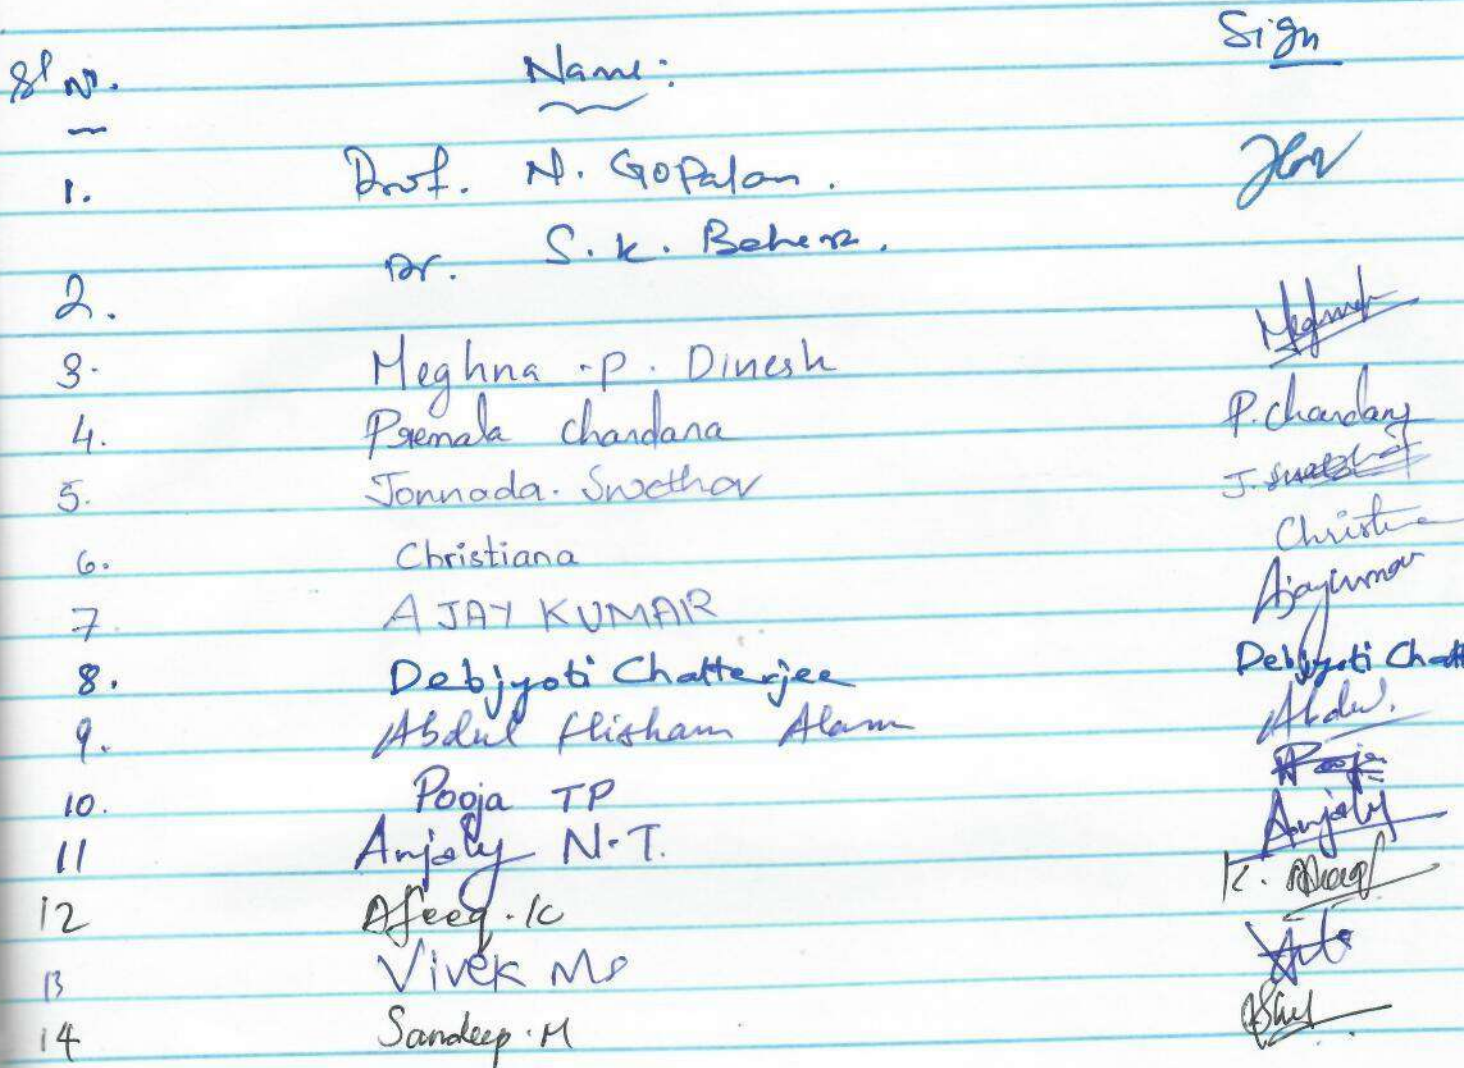 Sl No. Name: Sign
1. Prof. N. Gopalan.
2. Dr. S. K. Behera.
3. Meghna .P. Dinesh
4. Premala Chandana P. Chandana
5. Jonnada. Swetha J. Swetha
6. Christiana
7 AJAY KUMAR Ajaykumar
8. Debjyoti Chatterjee Debjyoti Chatt
9. Abdul Hisham Alam Abdul.
10. Pooja TP Pooja
11 Anjaly N.T. Anjaly
12 Afeeq. K
13 Vivek
14 Sandeep. M